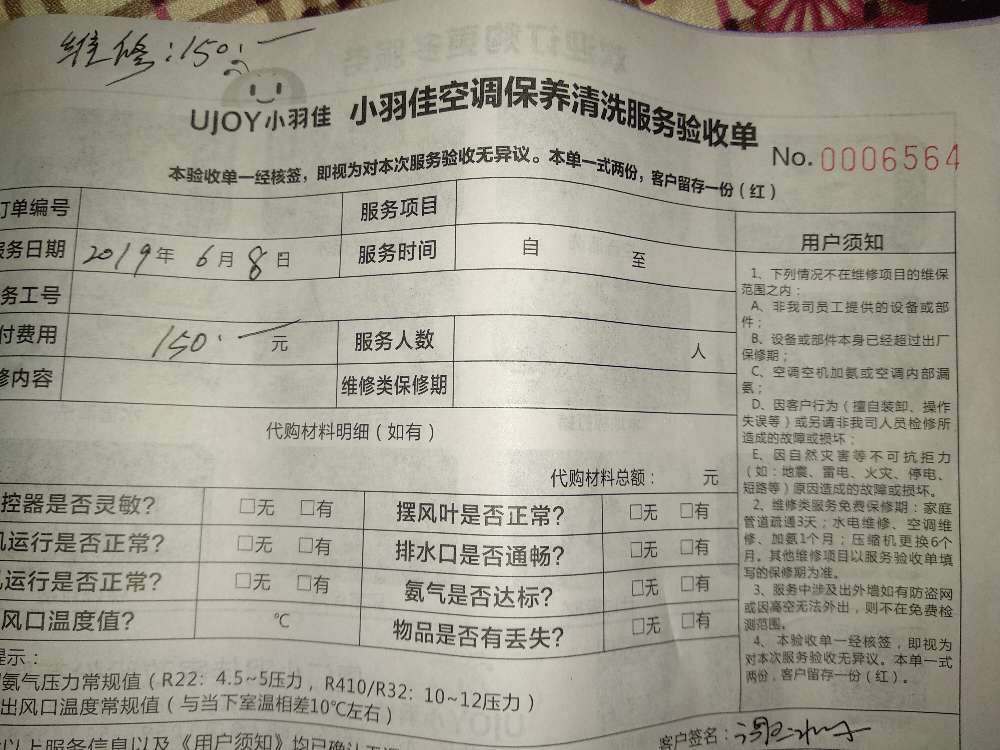 维修:150.一
UJOY小羽佳 小羽佳空调保养清洗服务验收单
No. 0006564
本验收单一经核签，即视为对本次服务验收无异议。本单一式两份，客户留存一份（红）
订单编号 服务项目
服务日期 2019年 6月 8日 服务时间 自 至
务工号
付费用 150.一 元 服务人数 人
修内容 维修类保修期
代购材料明细（如有）
代购材料总额： 元
控器是否灵敏? □无 □有 摆风叶是否正常? □无 □有
机运行是否正常? □无 □有 排水口是否通畅? □无 □有
运行是否正常? □无 □有 氨气是否达标? □无 □有
风口温度值? ℃ 物品是否有丢失? □无 □有
提示：
氨气压力常规值（R22：4.5~5压力，R410/R32：10~12压力）
出风口温度常规值（与当下室温相差10℃左右）
以上服务信息以及《用户须知》均已确认
客户签名：
用户须知
1、下列情况不在维修项目的维保
范围之内：
A、非我司员工提供的设备或部
件；
B、设备或部件本身已经超过出厂
保修期；
C、空调空机加氨或空调内部漏
氨；
D、因客户行为（擅自装卸、操作
失误等）或另请非我司人员检修所
造成的故障或损坏；
E、因自然灾害等不可抗拒力
（如：地震、雷电、火灾、停电、
短路等）原因造成的故障或损坏。
2、维修类服务免费保修期：家庭
管道疏通3天；水电维修、空调维
修、加氨1个月；压缩机更换6个
月。其他维修项目以服务验收单填
写的保修期为准。
3、服务中涉及出外墙如有防盗网
或因高空无法外出，则不在免费检
测范围。
4、本验收单一经核签，即视为
对本次服务验收无异议。本单一式
两份，客户留存一份（红）。